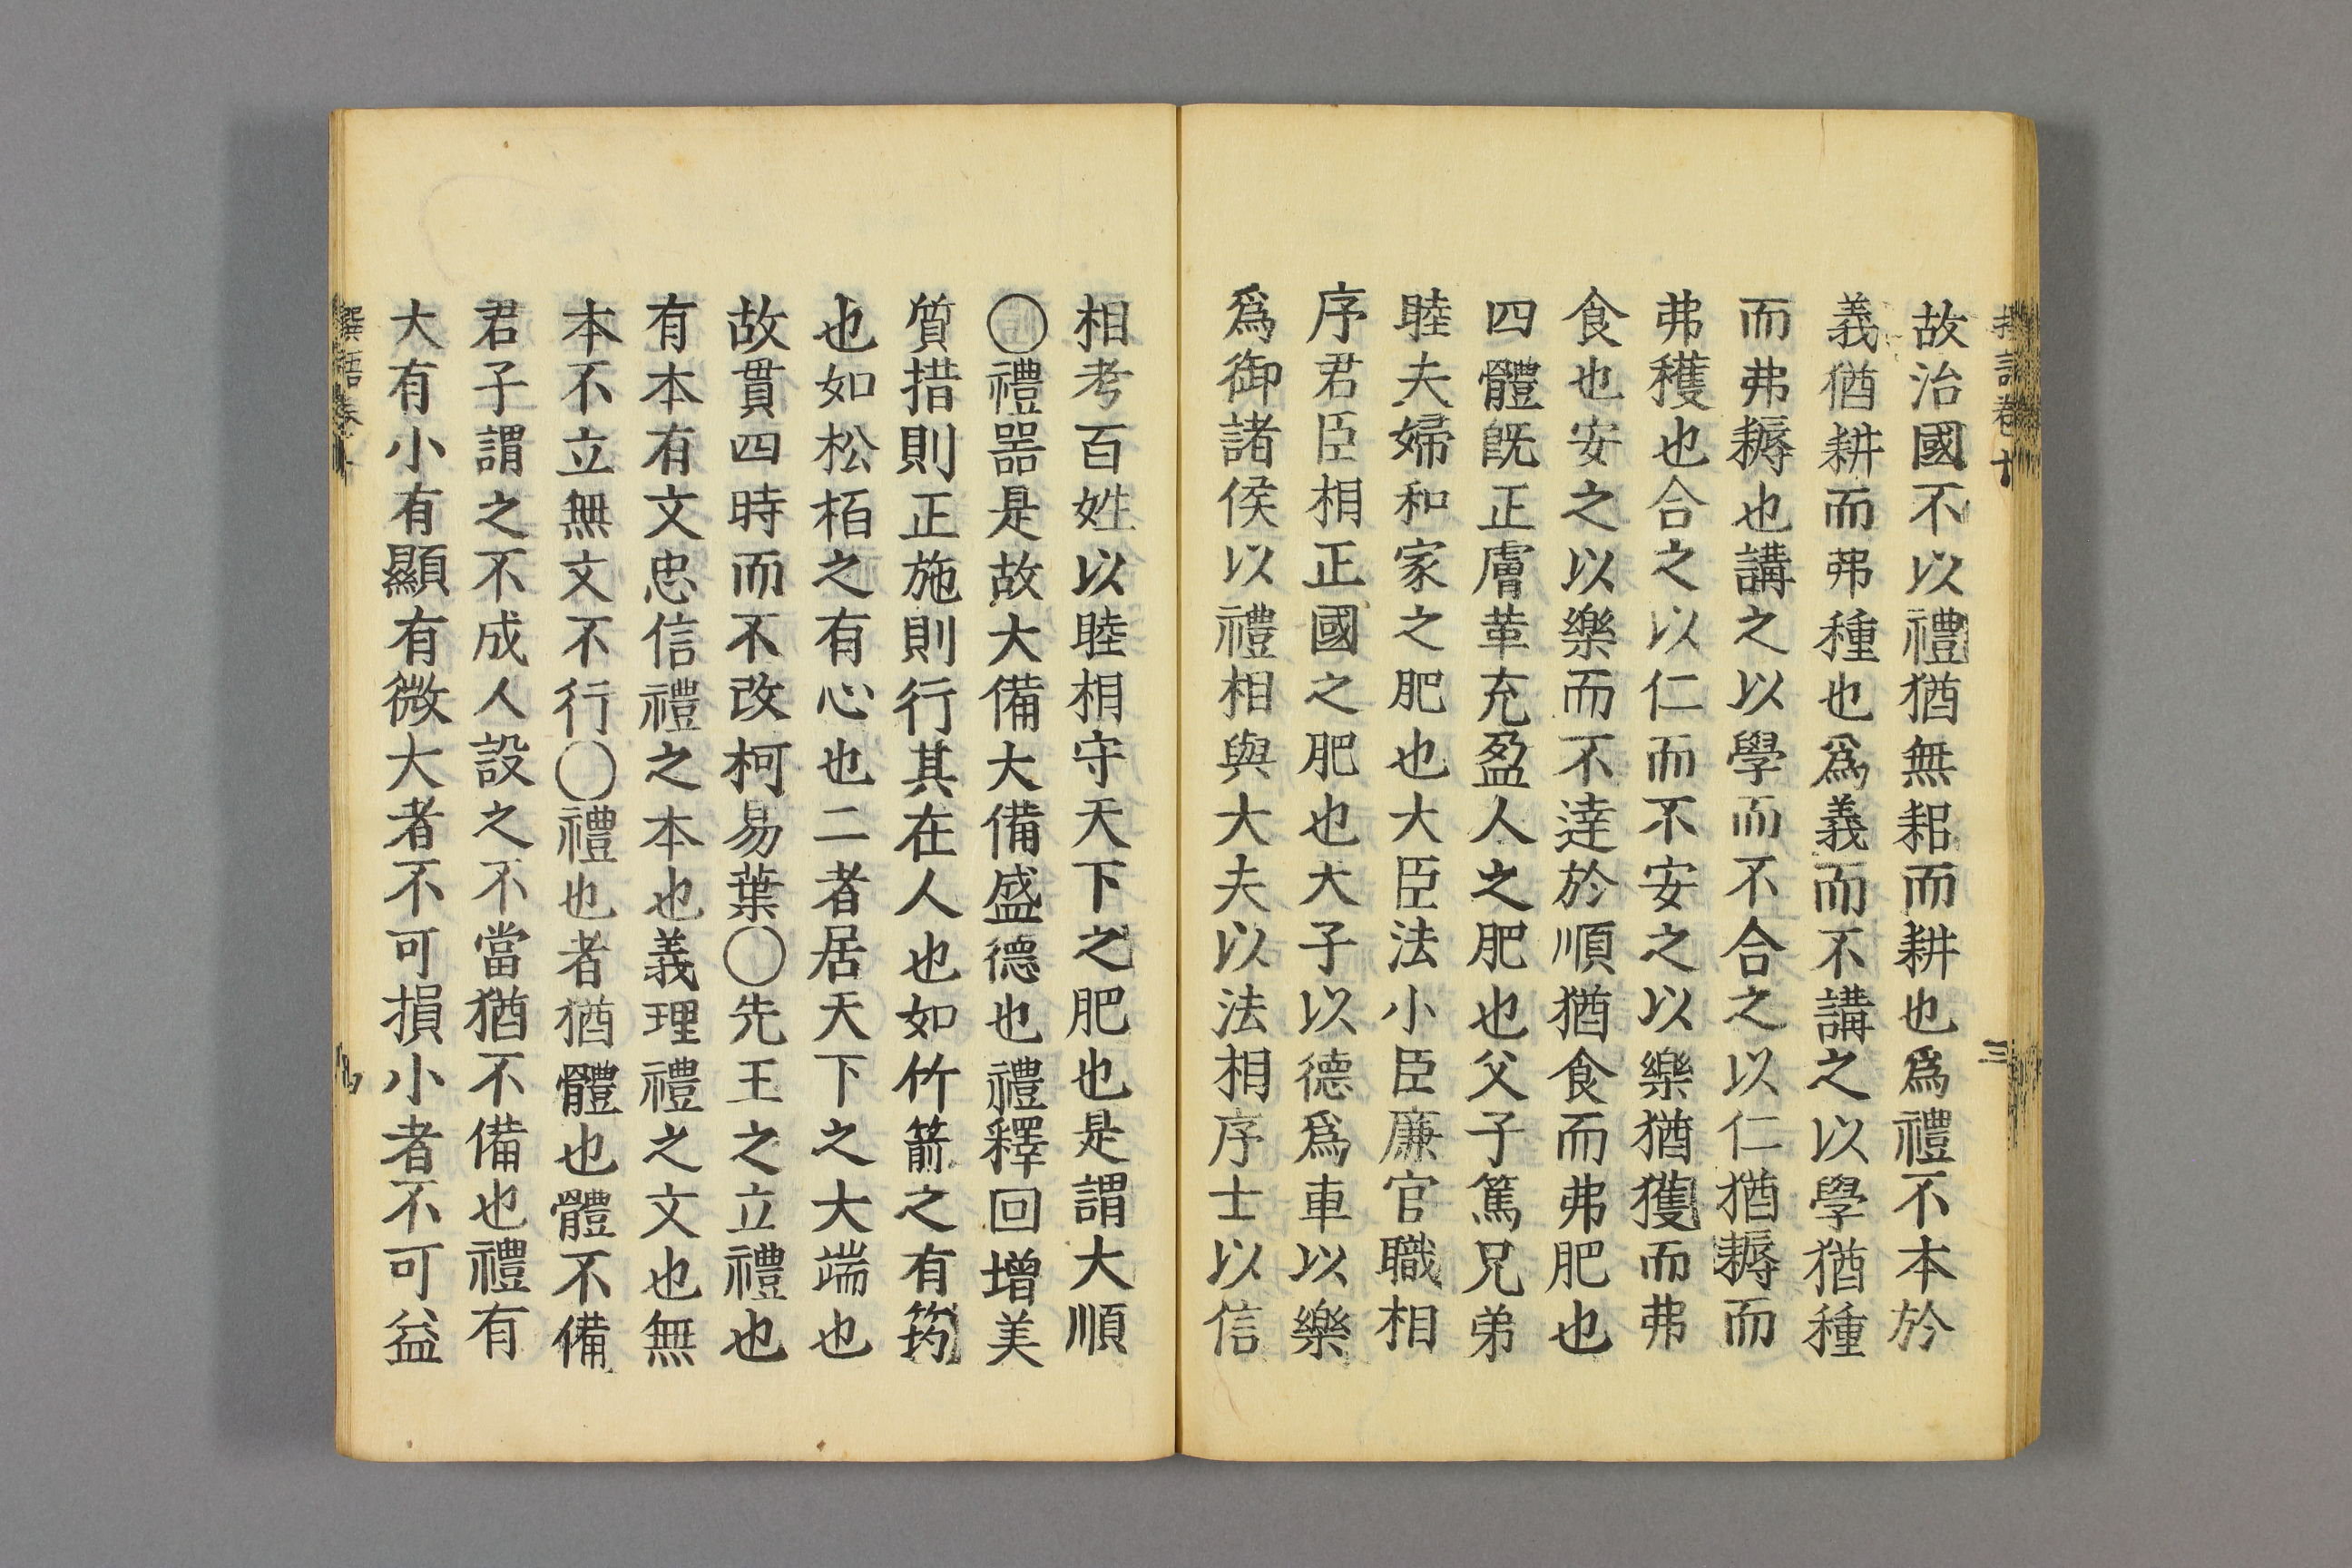 故治國不以禮猶無耜而耕也爲禮不本於
義猶耕而弗種也爲義而不講之以學猶種
而弗耨也講之以學而不合之以仁猶耨而
弗穫也合之以仁而不安之以樂猶獲而弗
食也安之以樂而不達於順猶食而弗肥也
四體旣正膚革充盈人之肥也父子篤兄弟
睦夫婦和家之肥也大臣法小臣廉官職相
序君臣相正國之肥也大子以德爲車以樂
爲御諸侯以禮相與大夫以法相序士以信
相考百姓以睦相守天下之肥也是謂大順
〇禮噐是故大備大備盛德也禮釋回增美
質措則正施則行其在人也如竹箭之有筠
也如松栢之有心也二者居天下之大端也
故貫四時而不改柯易葉〇先王之立禮也
有本有文忠信禮之本也義理禮之文也無
本不立無文不行〇禮也者猶體也體不備
君子謂之不成人設之不當猶不備也禮有
大有小有顯有微大者不可損小者不可益